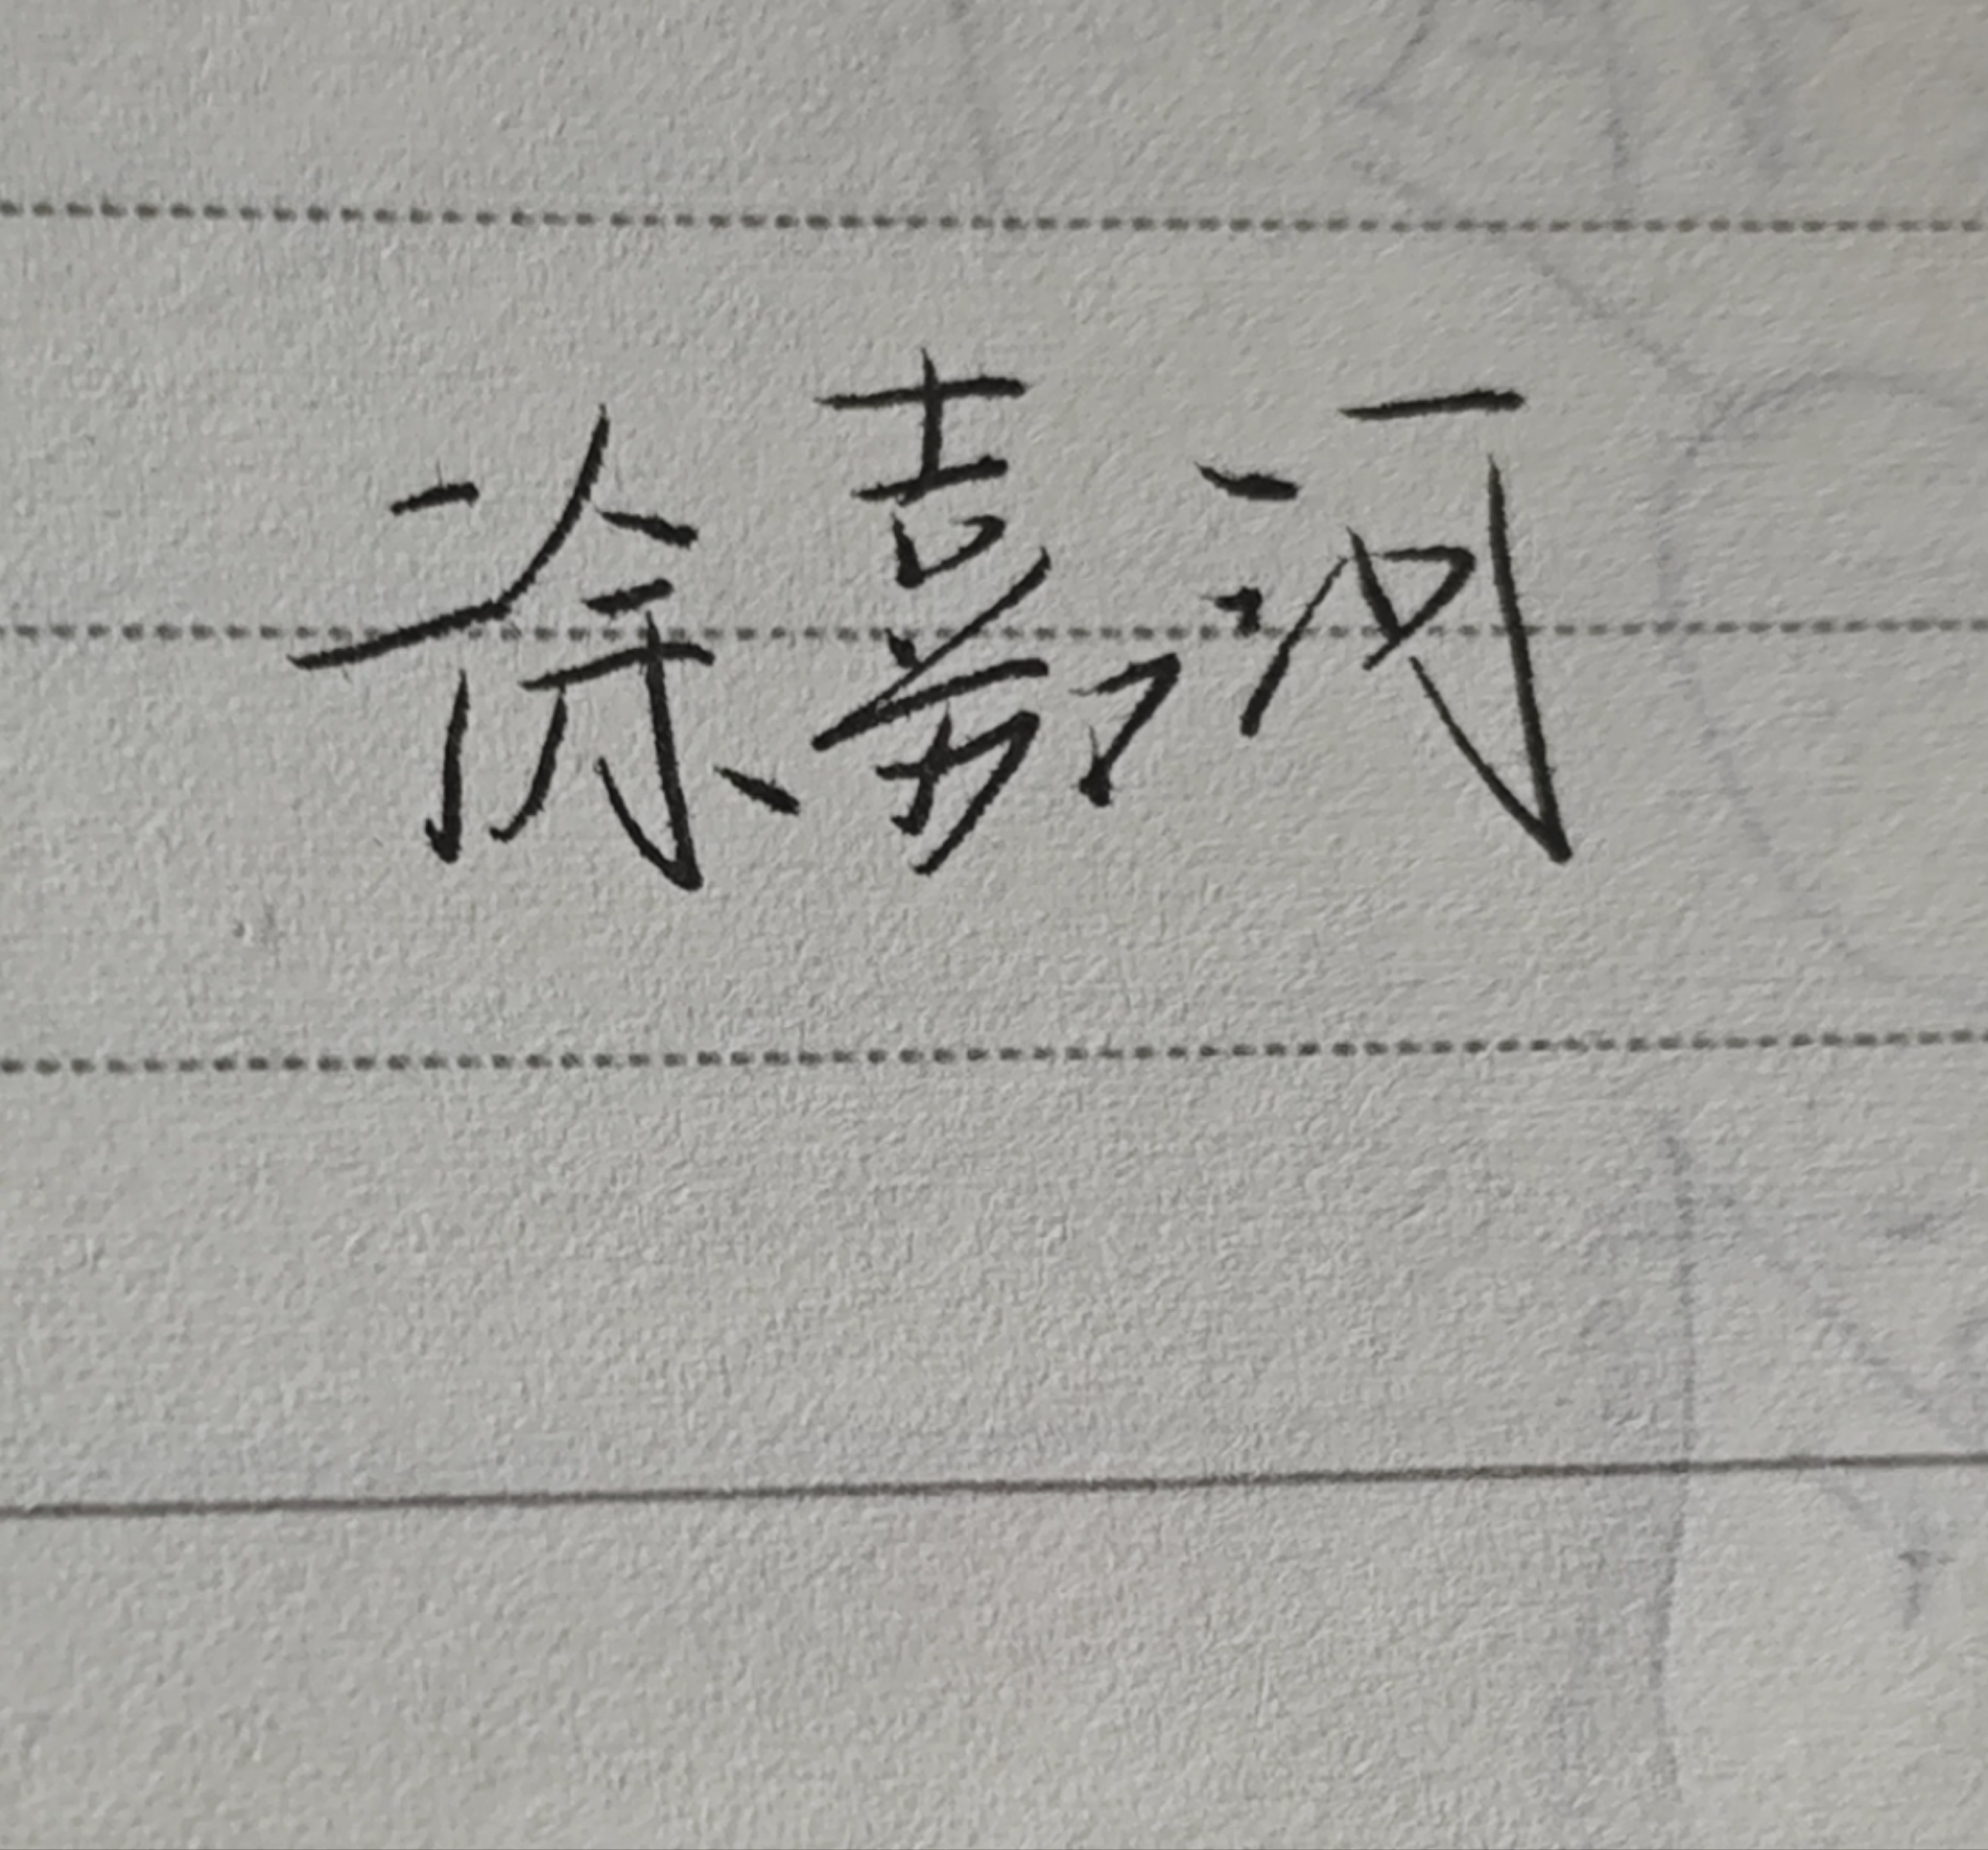 徐嘉河